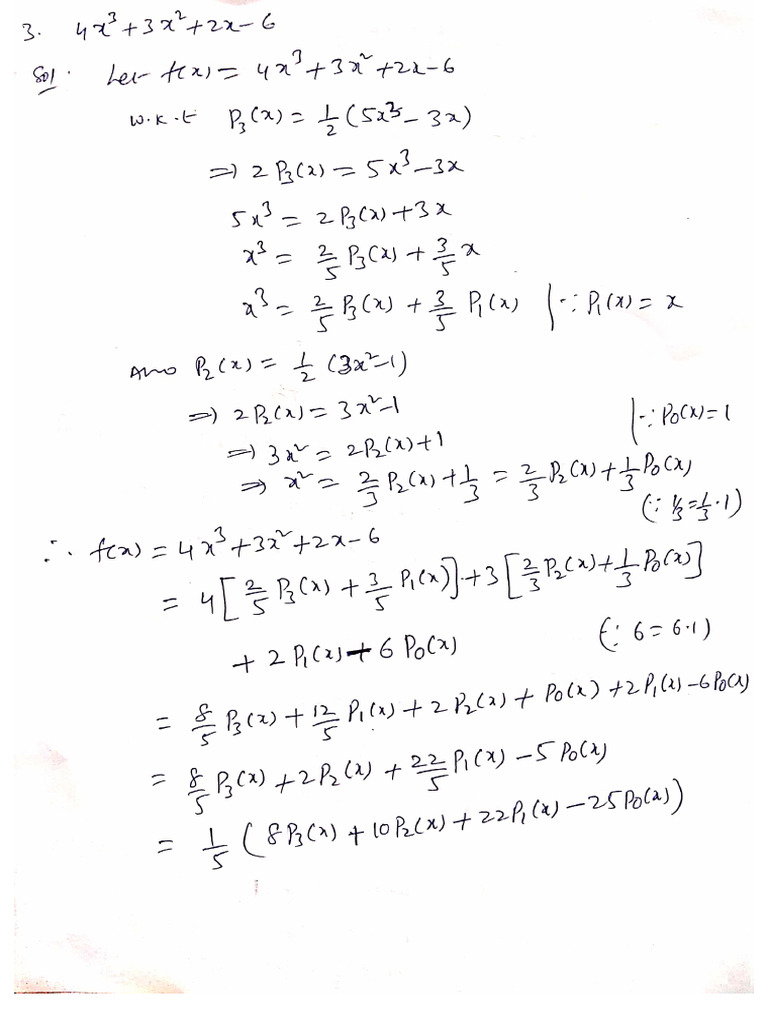 3. 4x³+3x²+2x-6
Sol. Let f(x) = 4x³+3x²+2x-6
w.k.t P₃(x) = 1/2 (5x³-3x)
⇒ 2P₃(x) = 5x³-3x
5x³ = 2P₃(x)+3x
x³ = 2/5 P₃(x) + 3/5 x
x³ = 2/5 P₃(x) + 3/5 P₁(x) | ∵ P₁(x) = x
And P₂(x) = 1/2 (3x²-1)
⇒ 2P₂(x) = 3x²-1 | ∵ P₀(x)=1
⇒ 3x² = 2P₂(x)+1
⇒ x² = 2/3 P₂(x) + 1/3 = 2/3 P₂(x) + 1/3 P₀(x)
(∵ 1/3 = 1/3 · 1)
∴ f(x) = 4x³+3x²+2x-6
= 4[2/5 P₃(x) + 3/5 P₁(x)] + 3[2/3 P₂(x) + 1/3 P₀(x)]
+ 2P₁(x) + 6P₀(x) (∵ 6 = 6·1)
= 8/5 P₃(x) + 12/5 P₁(x) + 2P₂(x) + P₀(x) + 2P₁(x) - 6P₀(x)
= 8/5 P₃(x) + 2P₂(x) + 22/5 P₁(x) - 5P₀(x)
= 1/5 (8P₃(x) + 10P₂(x) + 22P₁(x) - 25P₀(x))